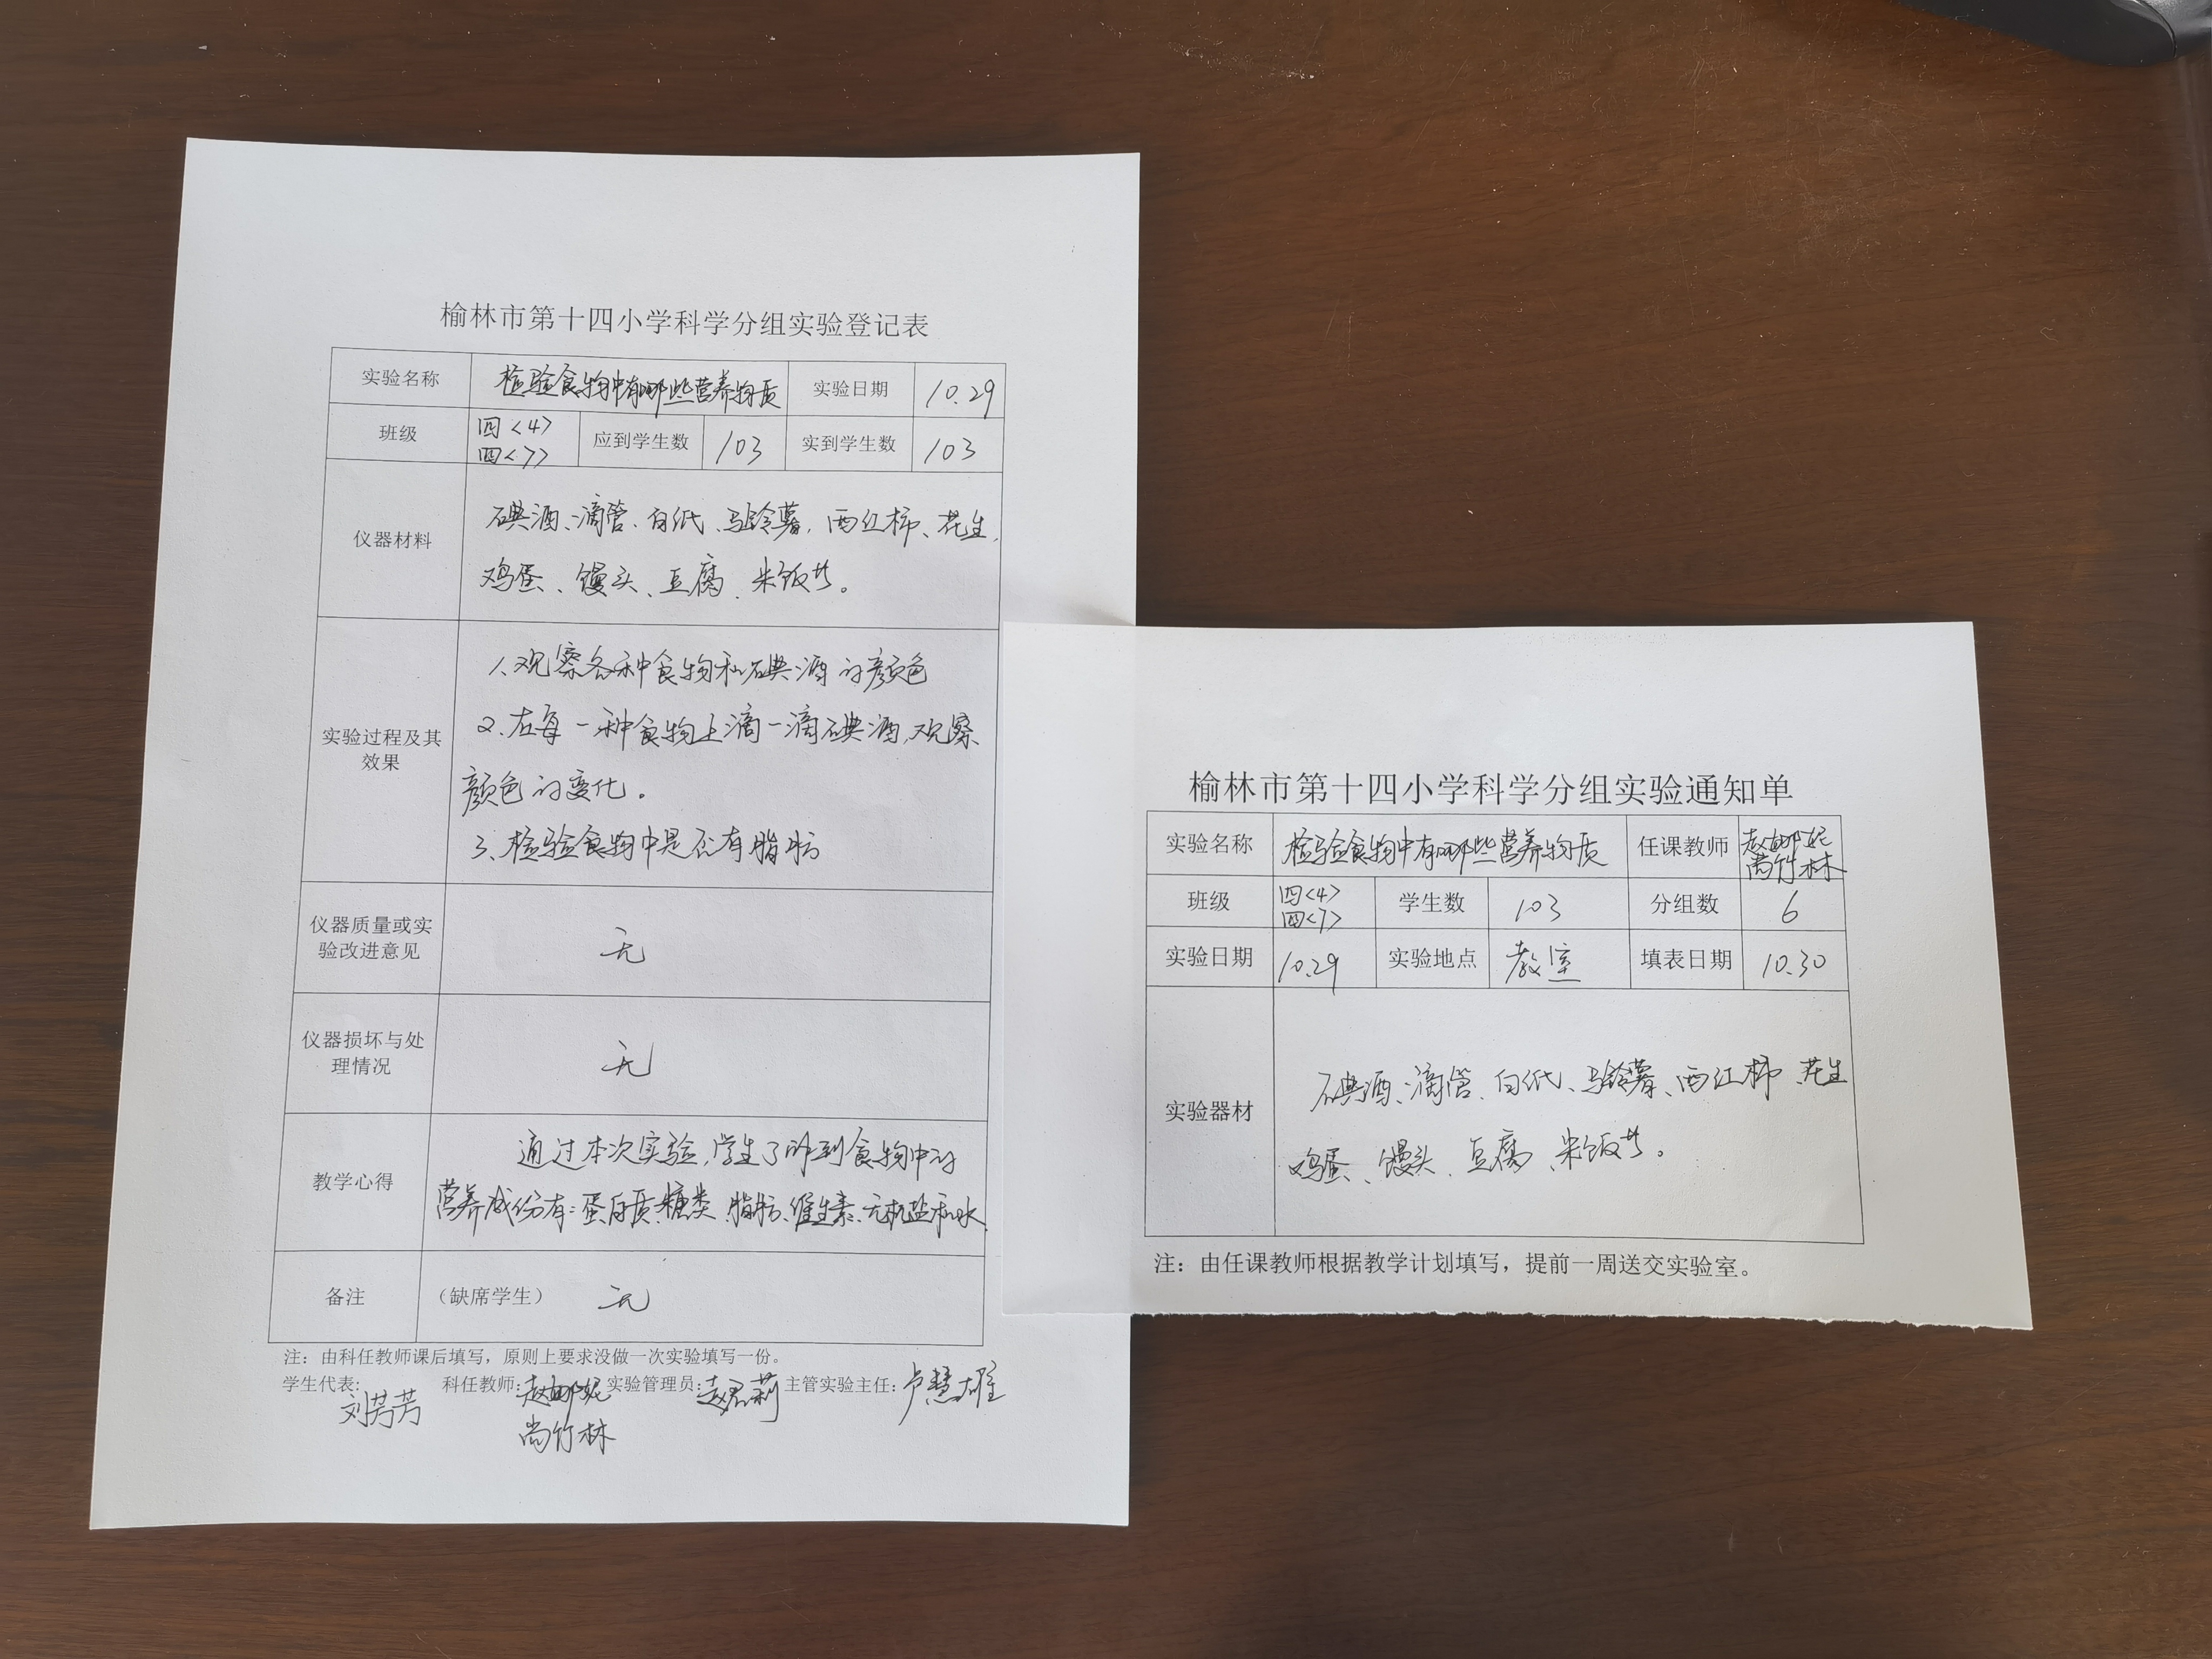 榆林市第十四小学科学分组实验登记表
实验名称 检验食物中有哪些营养物质 实验日期 10.29
班级 四<4> 四<7> 应到学生数 103 实到学生数 103
仪器材料
碘酒、滴管、白纸、马铃薯、西红柿、花生、
鸡蛋、馒头、豆腐、米饭等。
实验过程及其
效果
1、观察各种食物和碘酒的颜色
2、在每一种食物上滴一滴碘酒,观察
颜色的变化。
3、检验食物中是否有脂肪
仪器质量或实
验改进意见
无
仪器损坏与处
理情况
无
教学心得
通过本次实验,学生了解到食物中的
营养成份有:蛋白质、糖类、脂肪、维生素、无机盐和水
备注 (缺席学生) 无
注:由科任教师课后填写,原则上要求没做一次实验填写一份。
学生代表: 刘芳芳 科任教师: 赵娜妮 尚竹林 实验管理员: 赵君莉 主管实验主任: 卢慧雄
榆林市第十四小学科学分组实验通知单
实验名称 检验食物中有哪些营养物质 任课教师 赵娜妮 尚竹林
班级 四<4> 四<7> 学生数 103 分组数 6
实验日期 10.29 实验地点 教室 填表日期 10.30
实验器材
碘酒、滴管、白纸、马铃薯、西红柿、花生
鸡蛋、馒头、豆腐、米饭等。
注:由任课教师根据教学计划填写,提前一周送交实验室。